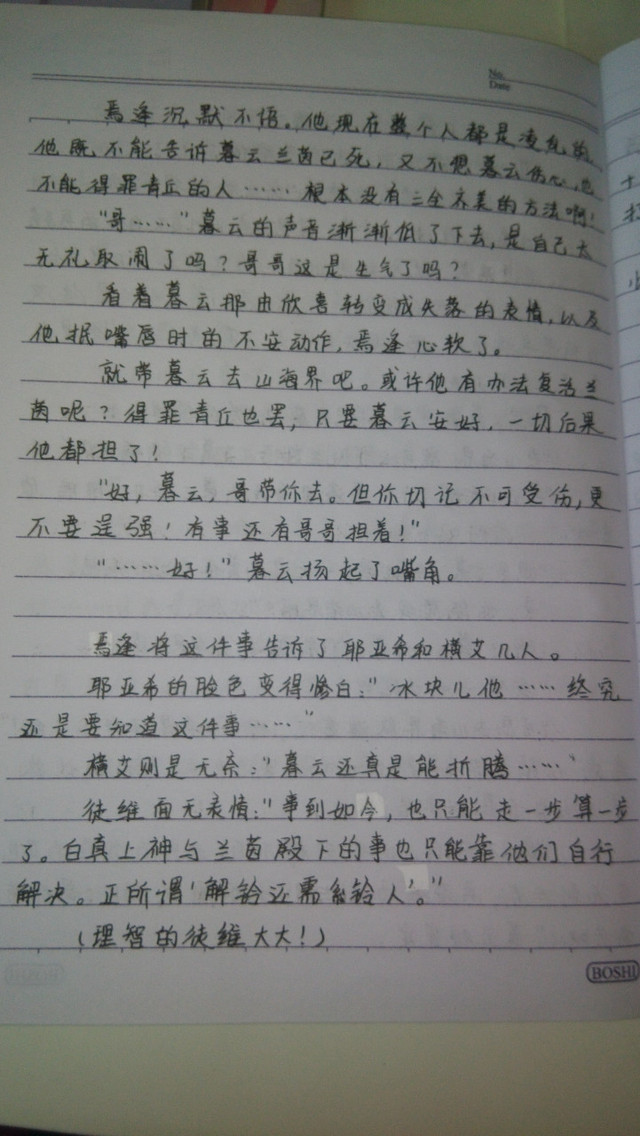 No.
Date
焉逢沉默不悟。他现在整个人都是凌乱的,
他既不能告诉暮云兰茵已死,又不想暮云伤心,也
不能得罪青丘的人……根本没有三全齐美的方法啊!
"哥……"暮云的声音渐渐低了下去,是自己太
无礼取闹了吗?哥哥这是生气了吗?
看着暮云那由欣喜转变成失落的表情,以及
他抿嘴唇时的不安动作,焉逢心软了。
就带暮云去山海界吧。或许他有办法复活兰
茵呢?得罪青丘也罢,只要暮云安好,一切后果
他都担了!
"好,暮云,哥带你去。但你切记不可受伤,更
不要逞强!有事还有哥哥担着!"
"……好!"暮云扬起了嘴角。
焉逢将这件事告诉了耶亚希和横艾几人。
耶亚希的脸色变得惨白:"冰块儿他……终究
还是要知道这件事……"
横艾则是无奈:"暮云还真是能折腾……"
徒维面无表情:"事到如今,也只能走一步算一步
了。白真上神与兰茵殿下的事也只能靠他们自行
解决。正所谓'解铃还需系铃人'。"
(理智的徒维大大!)
BOSHI